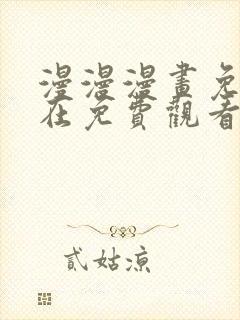 漫漫漫畫免
在免費觀看
貳姑涼